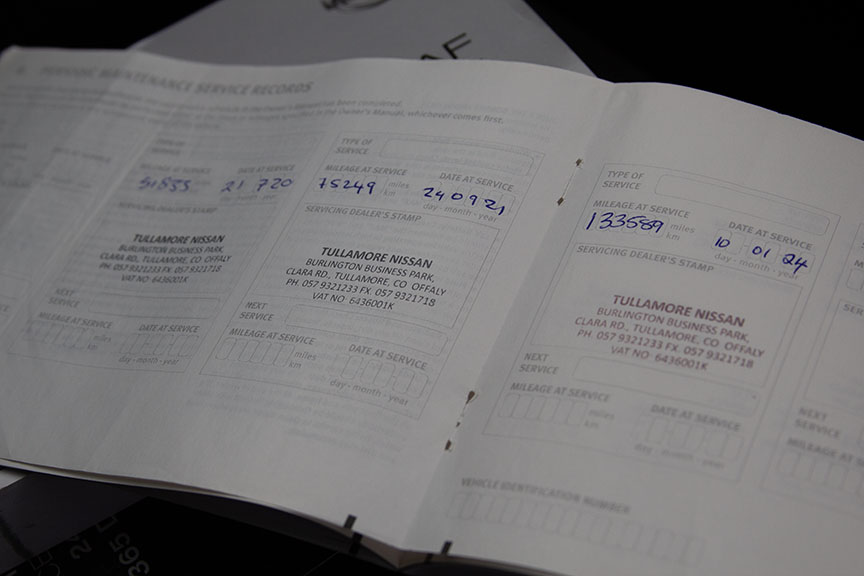 AF
PERIODIC MAINTENANCE SERVICE RECORDS
in the Owner's Manual has been completed.
specified in the Owner's Manual, whichever comes first.
MILEAGE AT SERVICE
DATE AT SERVICE
21 7 20
day - month - year
SERVICING DEALER'S STAMP
TULLAMORE NISSAN
BURLINGTON BUSINESS PARK,
CLARA RD., TULLAMORE, CO OFFALY
PH 057 9321233 FX. 057 9321718
VAT NO 6436001K
NEXT
SERVICE
MILEAGE AT SERVICE
DATE AT SERVICE
miles
km
day - month - year
TYPE OF
SERVICE
MILEAGE AT SERVICE
DATE AT SERVICE
75249 miles
km
24 09 21
day - month - year
SERVICING DEALER'S STAMP
TULLAMORE NISSAN
BURLINGTON BUSINESS PARK,
CLARA RD., TULLAMORE, CO OFFALY
PH 057 9321233 FX. 057 9321718
VAT NO 6436001K
NEXT
SERVICE
MILEAGE AT SERVICE
DATE AT SERVICE
miles
km
day - month - year
TYPE OF
SERVICE
MILEAGE AT SERVICE
DATE AT SERVICE
133589 miles
km
10 01 24
day - month - year
SERVICING DEALER'S STAMP
TULLAMORE NISSAN
BURLINGTON BUSINESS PARK,
CLARA RD., TULLAMORE, CO OFFALY
PH 057 9321233 FX. 057 9321718
VAT NO 6436001K
NEXT
SERVICE
MILEAGE AT SERVICE
DATE AT SERVICE
miles
km
day - month - year
VEHICLE IDENTIFICATION NUMBER
NEXT
SERVICE
MILEAGE AT
365